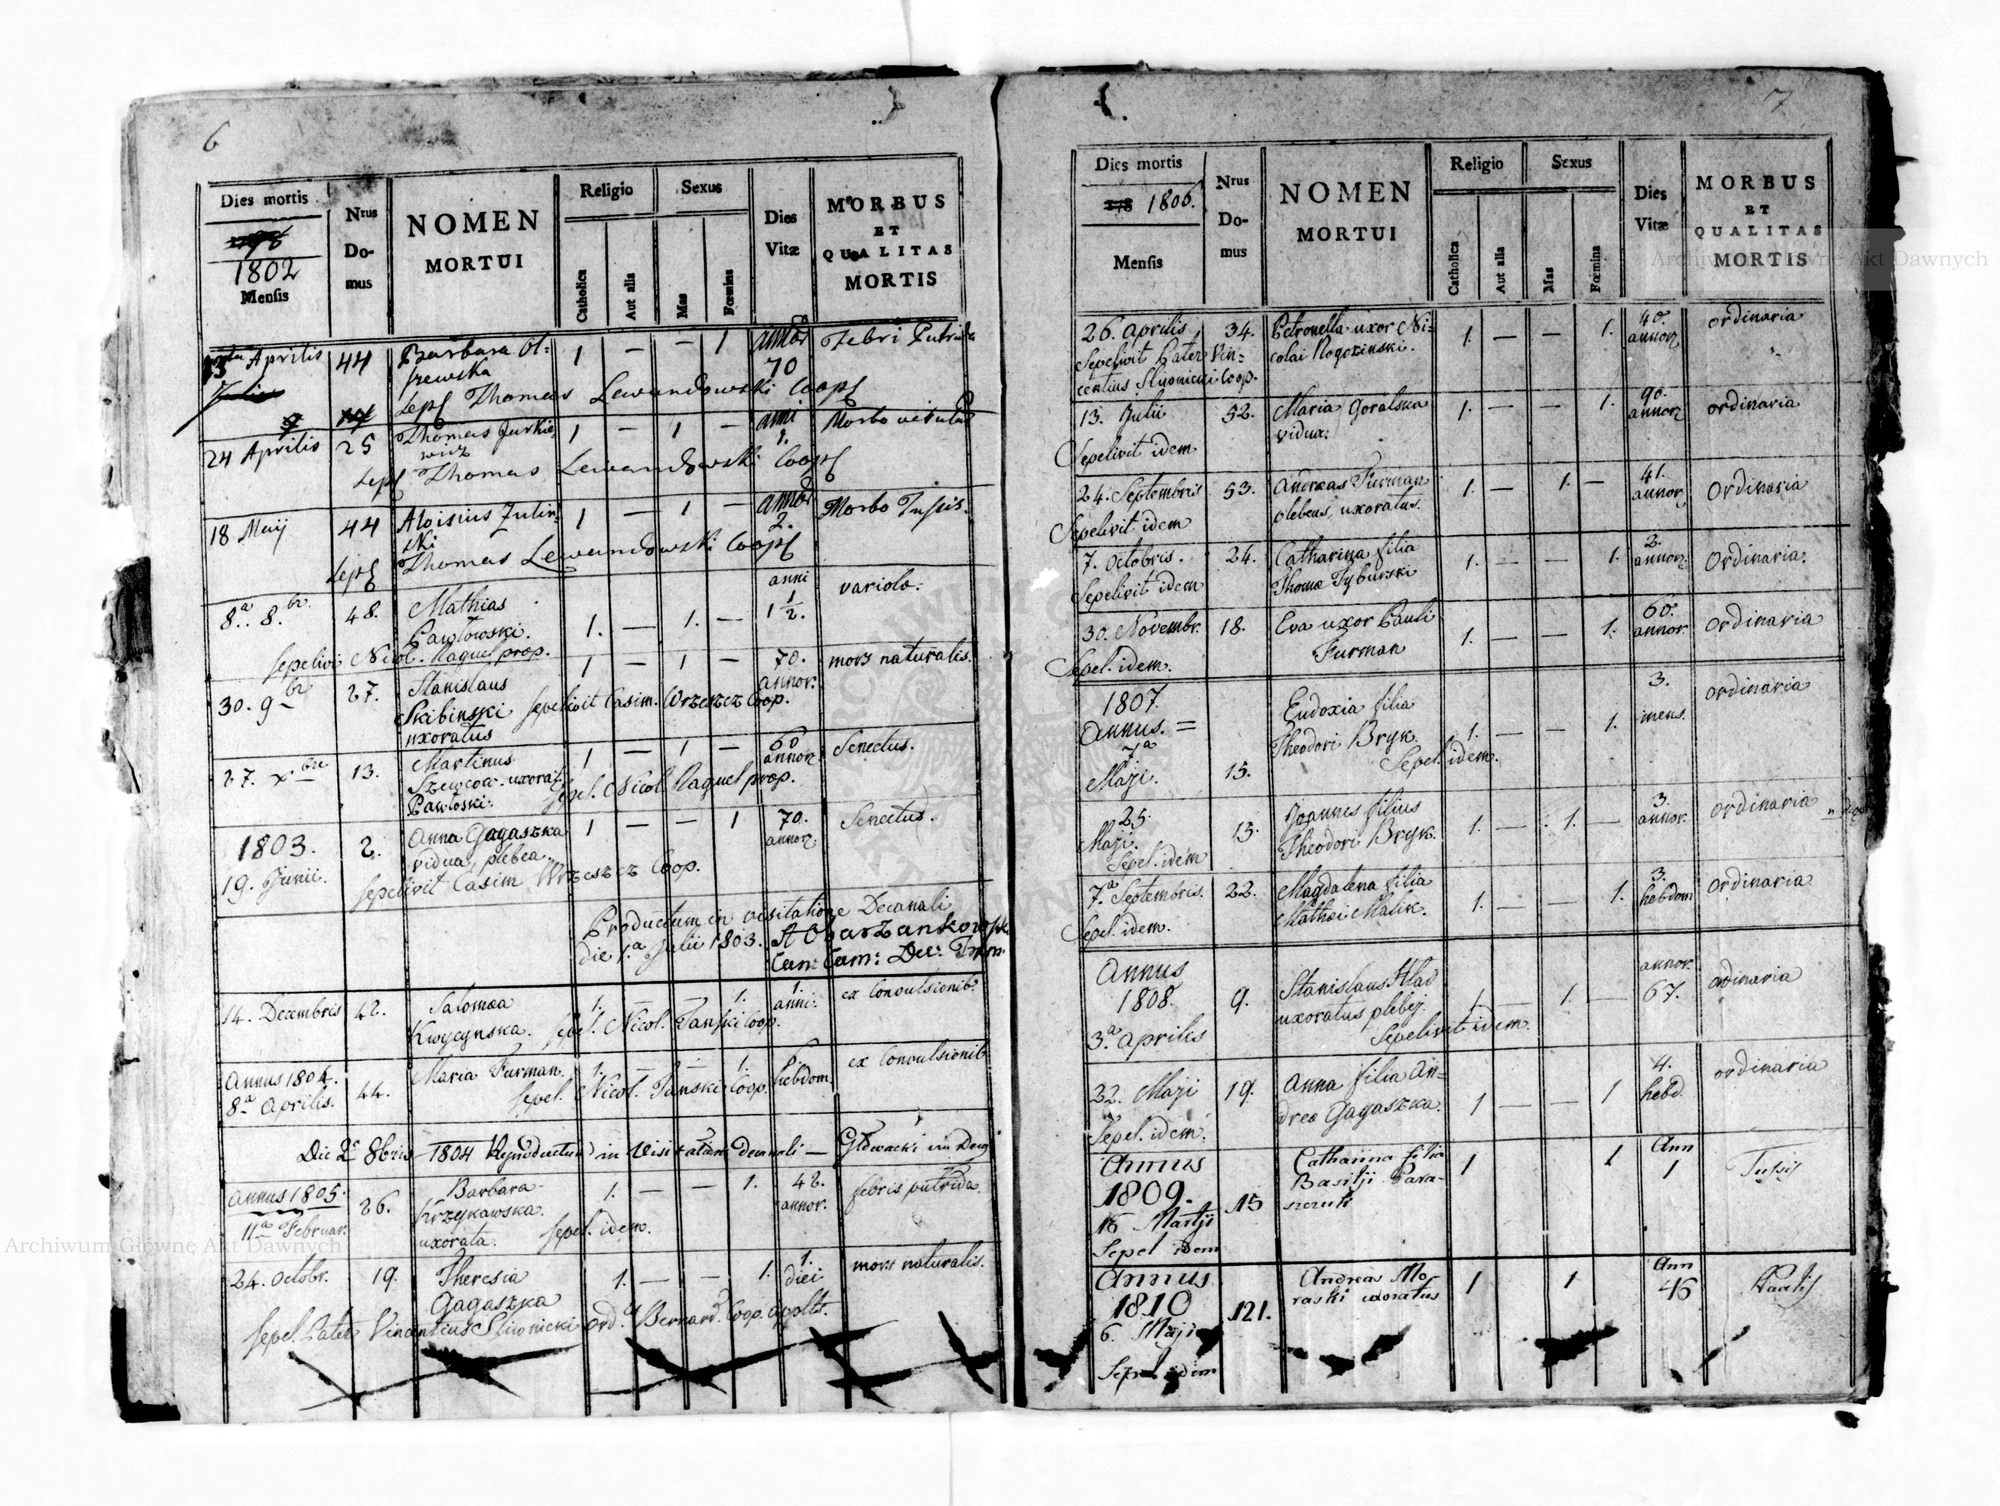 6
Dies mortis
1802
Mensis
Nrus
Do-
mus
NOMEN
MORTUI
Religio
Catholica
Aut alia
Sexus
Mas
Fœmina
Dies
Vitæ
MORBUS
ET
QUALITAS
MORTIS
13 Aprilis 44 Barbara Ol- 1 — — 1 annor Febri Putrida
szewska 70
Sep Thomas Lewandowski Coop
24 Aprilis 25 Thomas Jurkie- 1 — 1 — anni Morbo
wicz 1.
Sep Thomas Lewandowski Coop
18 Maij 44 Aloisius 1 — 1 — annor Morbo Tussis.
ski 2.
Sep Thomas Lewandowski Coop
8a 8br. 48. Mathias anni variola.
Pawłowski. 1. — 1. — 1 1/2.
sepelivi Nicol. Raquel prop.
30. 9br 27. Stanislaus 1 — 1 — 70. mors naturalis.
Skibinski sepelivit Casim. Wrzeszcz Coop. annor.
uxoratus
27. xbre 13. Martinus 1 — 1 — 60 Senectus.
Szewcow. uxorat. annor.
Pawłoski. sepel. Nicol. Raquel prop.
1803. 2. Anna Gagaszka 1 — — 1 70. Senectus.
19. Junii. vidua, plebea. annor.
sepelivit Casim. Wrzeszcz Coop.
Productum in visitatione Decanali
die 1.a Julii 1803.
Can: Cam: Dec:
14. Decembris 42. Salomea 1. — — 1. 1. anni. ex Convulsionib.
Kwycynska. sepel. Nicol. Tanski Coop.
Annus 1804. Maria Furman. 1. — — 1. 6. ex Convulsionib.
8a Aprilis. 44. sepel. Nicol. Tanski Coop. hebdom.
Die 2 8bris 1804 in Visitatione decanali —
Annus 1805. 26. Barbara 1. — — 1. 42. febris putrida.
11a Februar. Krzykawska. annor.
uxorata. sepel. idem.
24. Octobr. 19. Theresia 1. — — 1. 1. diei mors naturalis.
Gagaszka
sepel. Pater Vincentius Sliwnicki Ord. Bernard. Coop.
7
Dies mortis
1806.
Mensis
Nrus
Do-
mus
NOMEN
MORTUI
Religio
Catholica
Aut alia
Sexus
Mas
Fœmina
Dies
Vitæ
MORBUS
ET
QUALITAS
MORTIS
26. Aprilis 34. Petronella uxor Ni- 1. — — 1. 40. ordinaria
Sepelivit Pater Vin- colai Rogozinski. annor
centius Coop.
13. Julii 52. Maria Goralska 1. — — 1. 90. ordinaria
vidua. annor
Sepelivit idem
24. Septembris 53. Andreas Furman 1. — 1. — 41. Ordinaria
plebeus, uxoratus. annor
Sepelivit idem
7. Octobris. 24. Catharina filia 1. — — 1. 2. Ordinaria.
Sepelivit idem Thomæ Tyburski annor
30. Novembr. 18. Eva uxor Pauli 1. — — 1. 60. Ordinaria
Sepel. idem. Furman annor.
1807. 3. ordinaria
Annus. = Eudoxia filia mens.
7a Theodori Bryk. 1. — — 1.
Maji. 15. Sepel. idem.
25. 15. Joannes filius 1. — 1. — 3. ordinaria
Maji. Theodori Bryk. annor.
Sepel. idem
7a Septembris. 22. Magdalena filia 1. — — 1. 3. ordinaria
Sepel. idem. Mathei Malik. hebdom
Annus annor. ordinaria
1808. 9. Stanislaus Hlad 1 — 1. — 67.
3a Aprilis uxoratus plebej.
Sepelivit idem.
22. Maji 19. Anna filia An- 1 — — 1 4. ordinaria
Sepel. idem. dreæ Gagaszka. hebd.
Annus Catharina filia 1 1 Ann Tussis
1809. 15 Basilji Para- 1
16 Martji
Sepel idem
Annus Andreas Mo 1 1 Ann
1810 121. raski uxoratus 46
6. Maji
Sepel idem
Archiwum Główne Akt Dawnych
Archiwum Główne Akt Dawnych